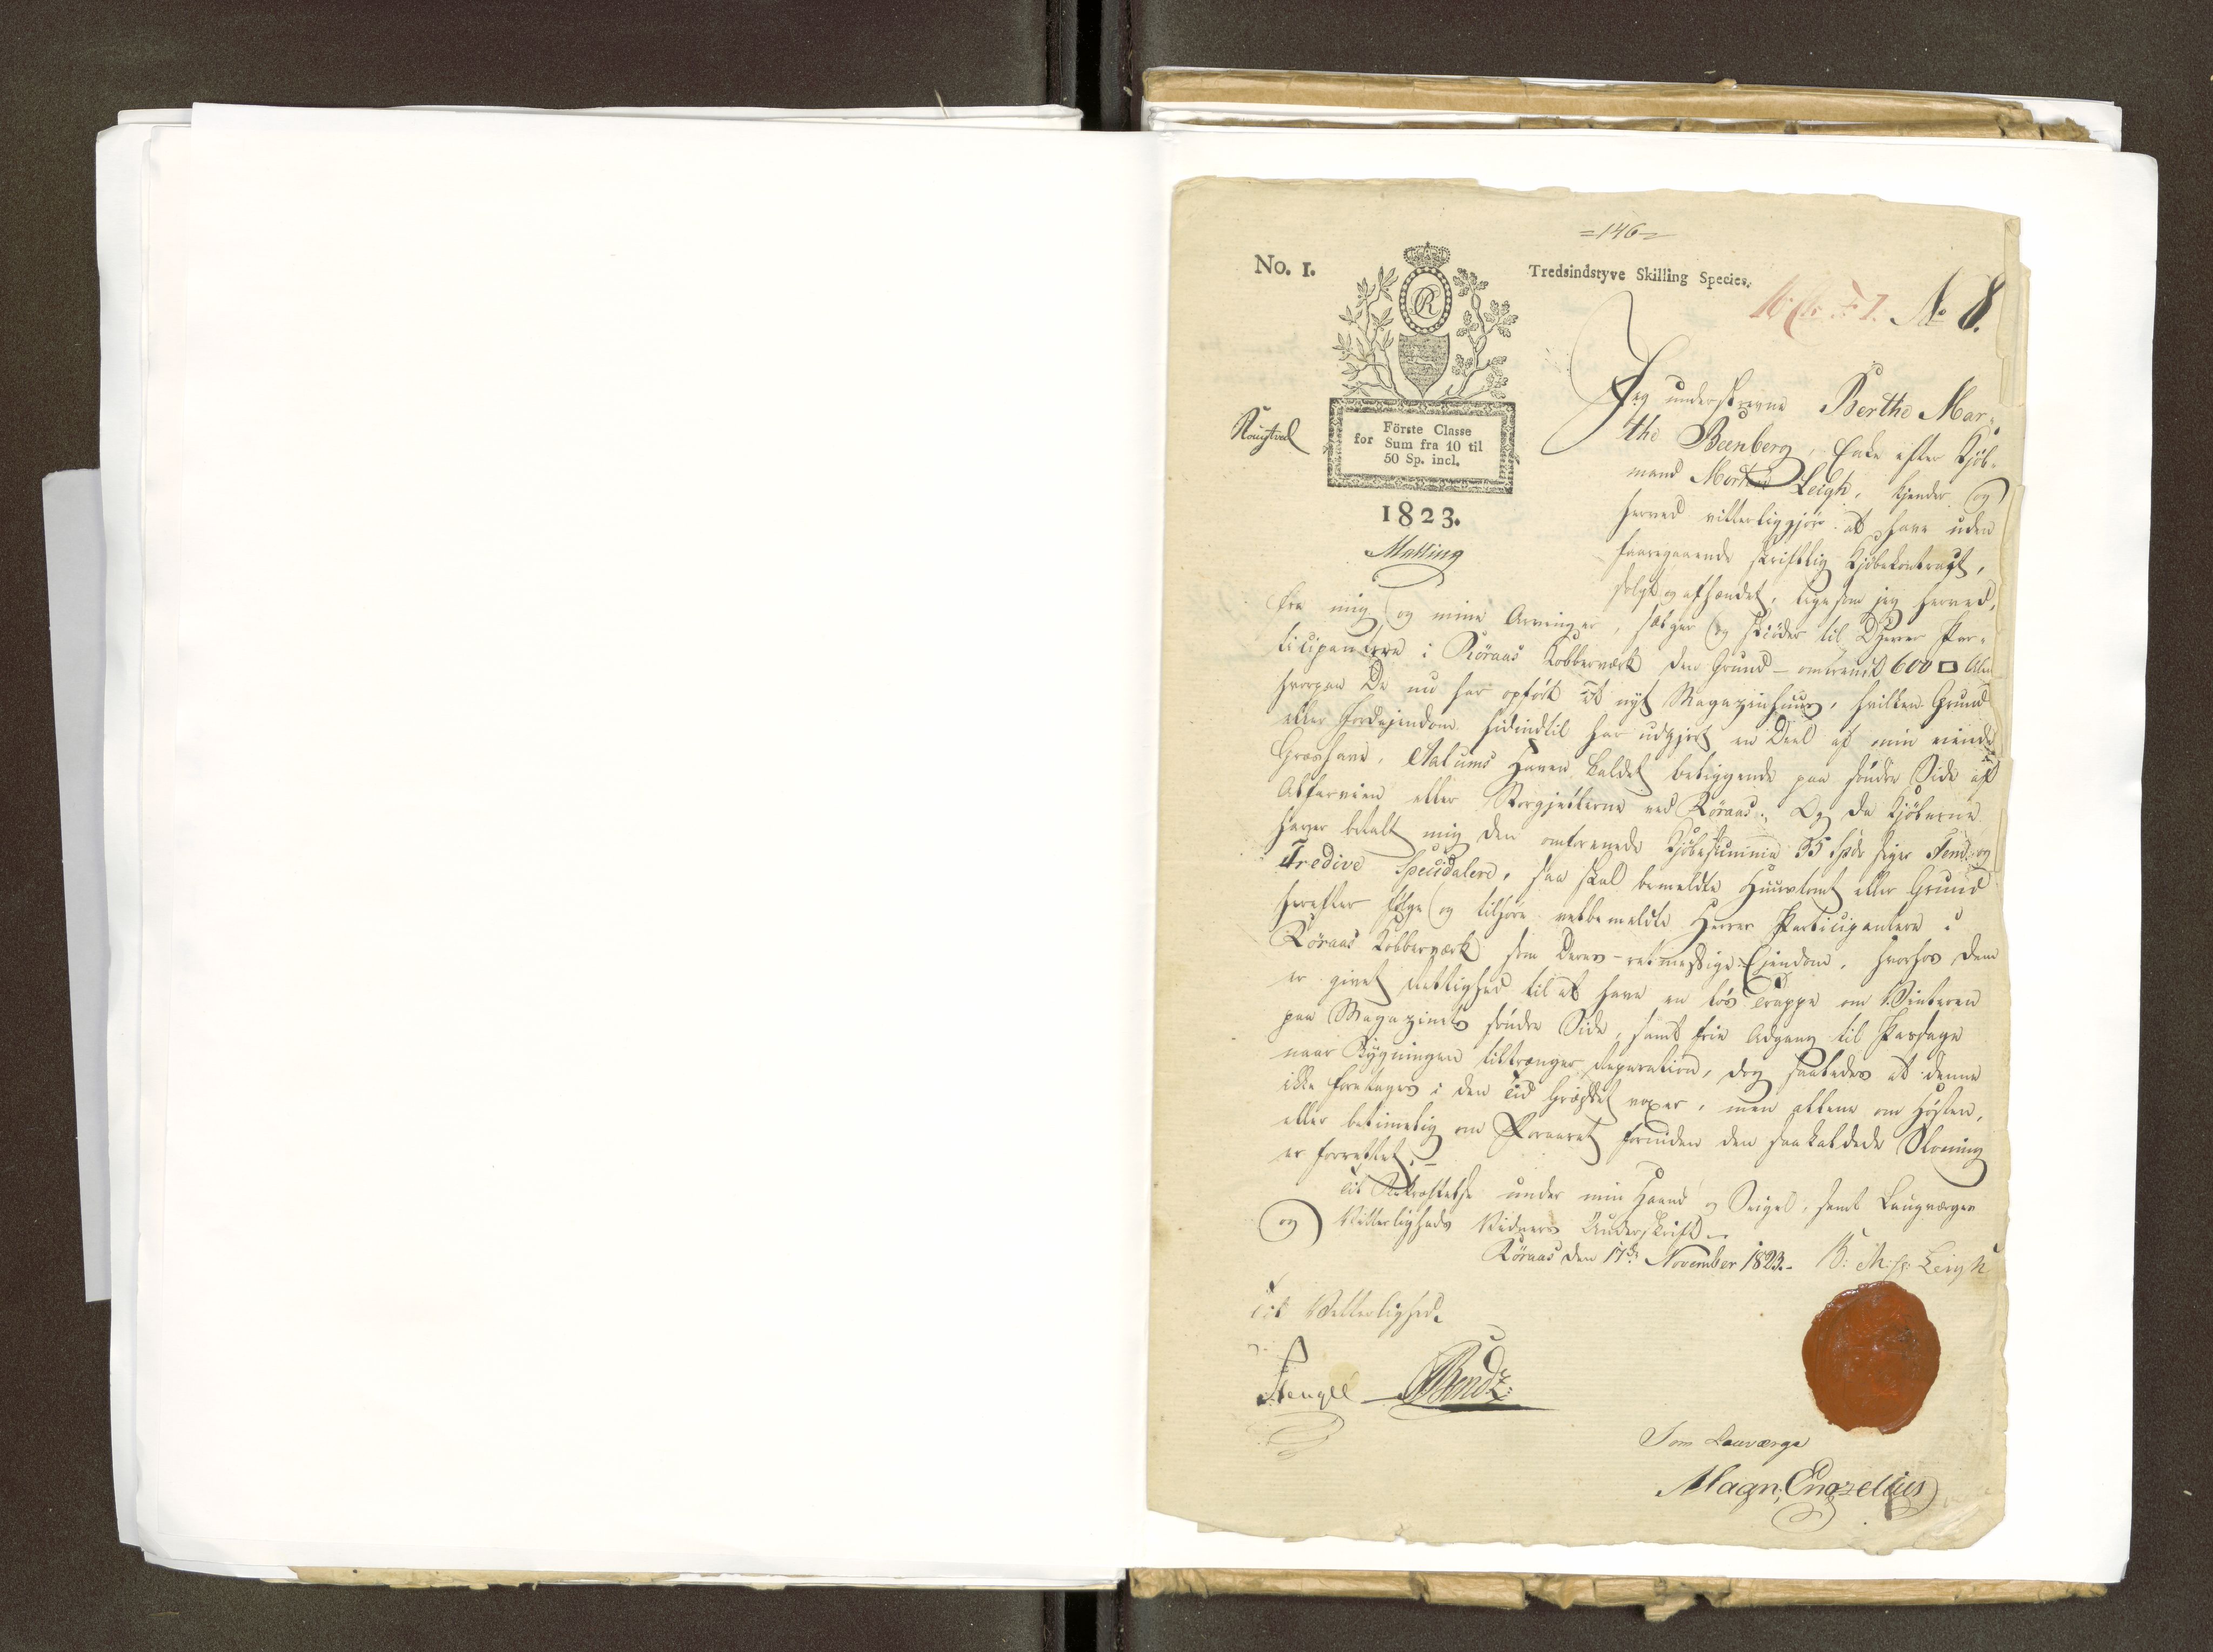 =146=
No. 1.
Tredsindstyve Skilling Species.
No 8.
R
Förste Classe
for Sum fra 10 til
50 Sp. incl.
1823.
Matting
Jeg underskrevne Berthe Mar-
the Beenberg, Enke efter Kjöb-
mand Morten Leigh, kjender og
herved vitterliggjør at have uden
foregaaende skriftlig Kjöbekontragt,
solgt og afhændet, ligesom jeg herved,
fra mig og mine Arvinger, sælger og skiöder til D'Herrer Par-
ticipantere i Röraas Kobberværk den Grund - omtrendt 600 □ Alen
hvorpaa De nu har opfört et nyt Magazinhuus, hvilken Grund
eller Jordejendom hidindtil har udgjort en Deel af min eiende
Græshave, Aalums Haven kaldet beliggende paa söndre Side af
Alfarveien eller Norgjeilerne ved Röraas. Og da Kjöberne
haver betalt mig den omforenede Kjöbesumma 35 Spdr siger Fem og
Tredive Speciedalere, saa skal bemeldte Huustomt eller Grund
herefter fölge og tilhöre velbemeldte Herrer Participantere i
Röraas Kobberværk som Deres retmessige Ejendom, hvorhos dem
er givet Rettighed til at have en lös Trappe om Vinteren
paa Magazinets söndre Side, samt frie Adgang til Passage
naar Bygningen tiltrænger Reparation, dog saaledes at denne
ikke foretages i den Tid Græsset voxer, men allene om Hösten,
eller betimelig om Foraaret forinden den saakaldede Sloning
er forrettet. -
Til Bekræftelse under min Haand og Seigel, samt Laugværgen
og Vitterligheds Vidners Underskrift. -
Röraas den 17de November 1823. - B: M: s: Leigh
Til Vitterlighed.
Bendz:
Som Lauværge
Magn: Engzelius